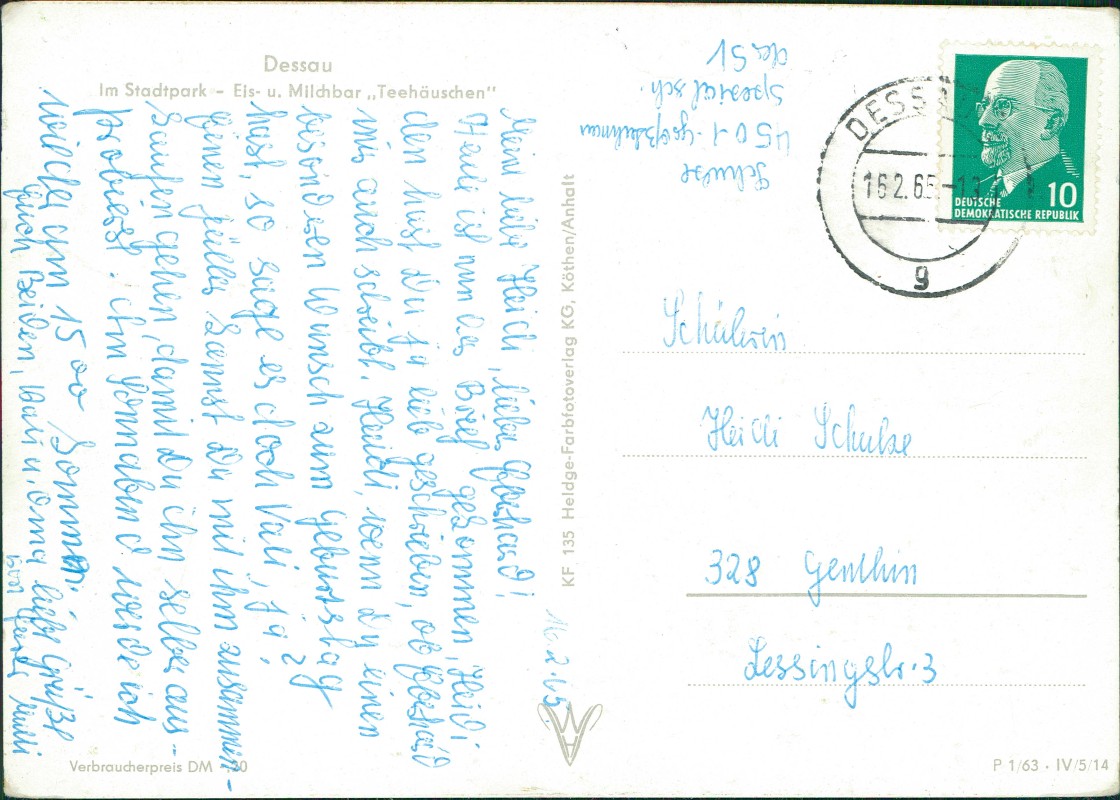 Dessau
Im Stadtpark – Eis- u. Milchbar „Teehäuschen"
16.2.65.
Mein liebe Heidi, lieber Ebehard!
Heute ist nun der Brief gekommen, Heidi
den hast Du ja lieb geschrieben, ob Ebehard
mir auch schreibt. Heidi, wenn Du einen
besonderen Wunsch zum Geburtstag
hast, so sage es doch Vati, ja?
Einen Füller kannst Du mit ihm zusammen-
kaufen gehen, damit Du ihn selber aus-
probierst. Am Sonnabend werde ich
wieder um 15 00 kommen.
Euch Beiden, Vati u. Oma liebe Grüße
Eure Mutti
Verbraucherpreis DM
KF 135 Heldge-Farbfotoverlag KG, Köthen/Anhalt
Schulze
4501
Spezialsch.
des SV
DESSAU
16.2.65
g
10
DEUTSCHE
DEMOKRATISCHE REPUBLIK
Schülerin
Heidi Schulze
328 Genthin
Lessingstr. 3
P 1/63 · IV/5/14